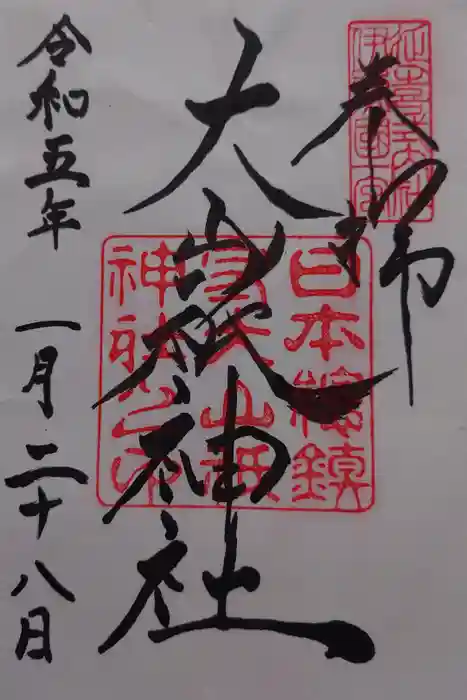 奉拝
大山祇神社
令和五年 一月二十八日
日本総鎮
守大山祇
神社之印